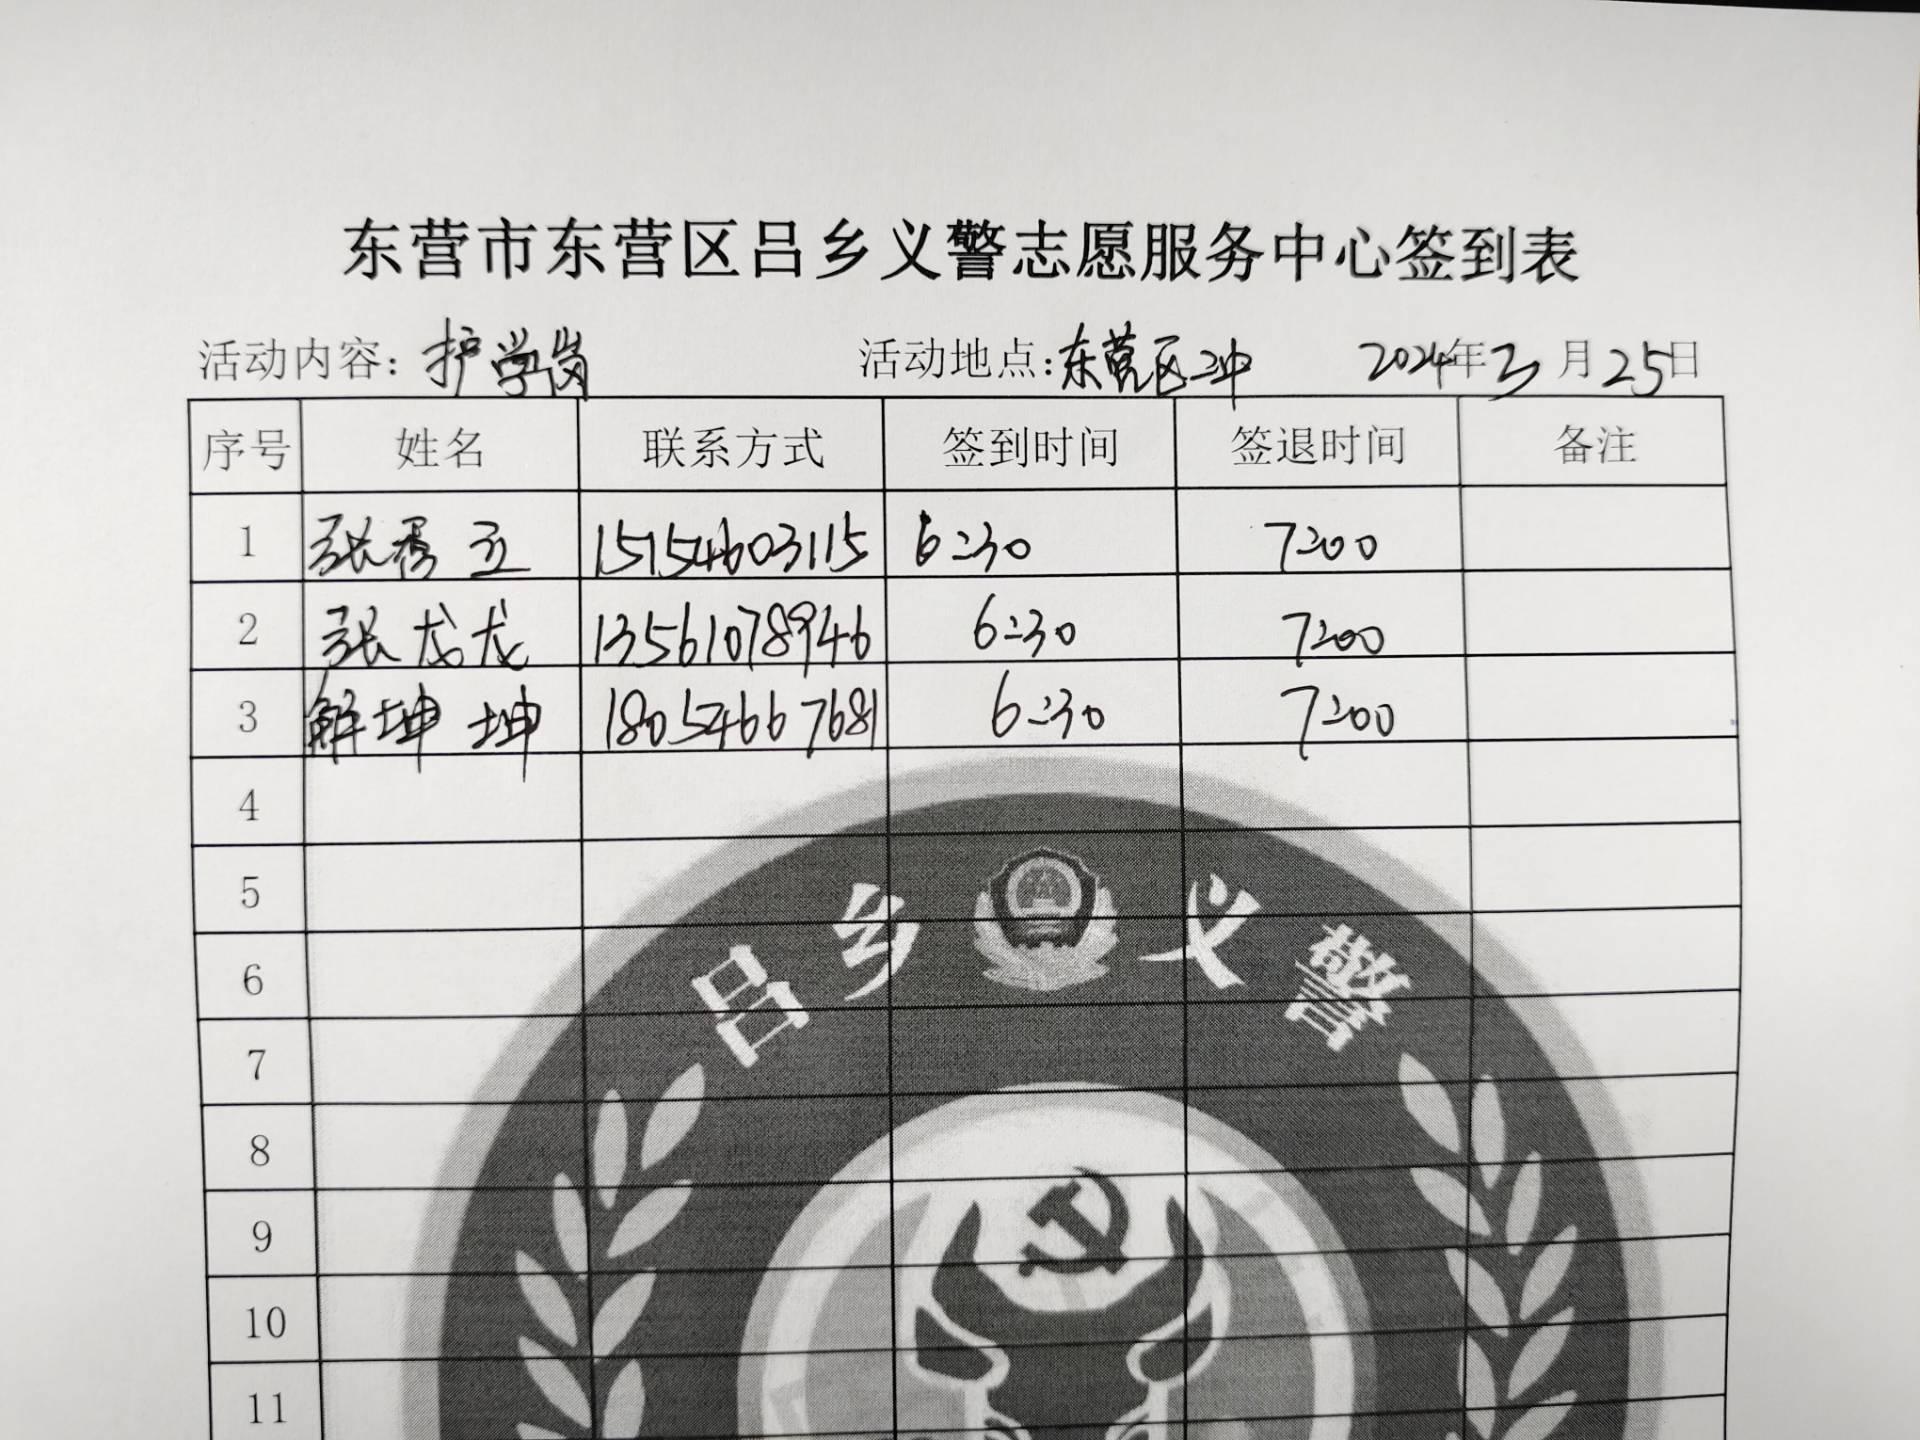 东营市东营区吕乡义警志愿服务中心签到表
活动内容：护学岗 活动地点：东营区二中 2024年3月25日
序号 姓名 联系方式 签到时间 签退时间 备注
1 张秀立 15154603115 6:30 7:00
2 张龙龙 13561078946 6:30 7:00
3 解坤坤 18054667681 6:30 7:00
4
5
吕乡义警
6
7
8
9
10
11